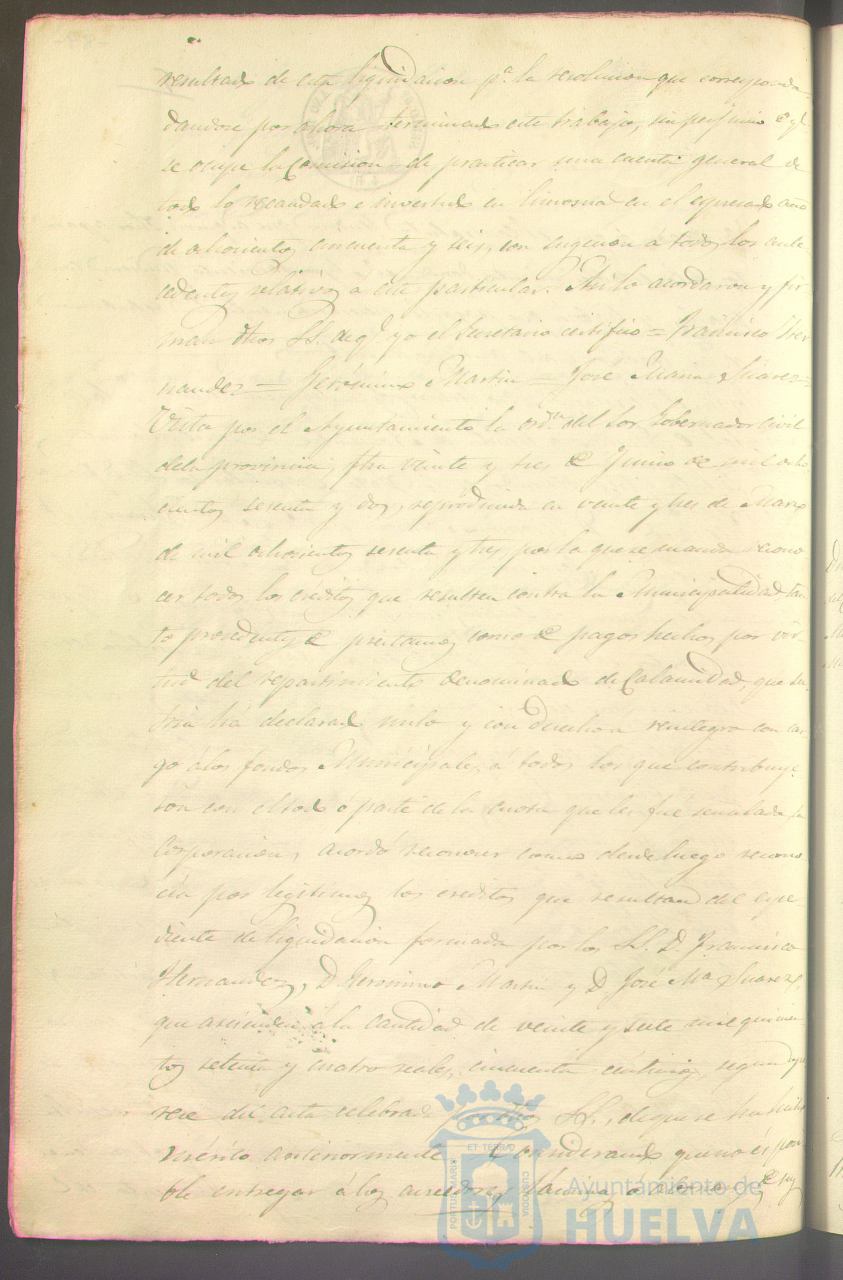 resultado de esta liquidacion pª. la resolucion que corresponda
dandose por ahora terminado este trabajo, sin perjuicio de q.e
se ocupe la Comision de practicar una cuenta general de
todo lo recaudado e invertido en limosna en el espresado año
de ochocientos cincuenta y seis, con sugecion a todos los ante
cedentes relativos a este particular. Asi lo acordaron y fir
man dhos SS. de q.e yo el Secretario certifico = Francisco Her
nandez = Gerónimo Martin = José Maria Suarez =
Vista por el Ayuntamiento la ord.n del Sor Gobernador Civil
de la provincia, fha veinte y tres de Junio de mil ocho
cientos sesenta y dos, reproducida en veinte y tres de Marzo
de mil ochocientos sesenta y tres por la que se manda recono
cer todos los créditos que resulten contra la Municipalidad tan
to procedentes de préstamos como de pagos hechos por vir
tud del repartimiento denominado de Calamidad, que
ha declarado nulo y con derecho a reintegro con car
go á los fondos Municipales, á todos los que contribuye
ron con el todo ó parte de la cuota que les fué señalada, la
Corporacion, acordó reconocer como desde luego recono
cia por legitimos los creditos que resultan del espe
diente de liquidacion formada por los SS. D. Francisco
Hernandez, D. Geronimo Martin y D José Mª Suarez,
que ascienden a la cantidad de veinte y siete mil quinien
tos setenta y cuatro reales, cincuenta centimos, segun apa
rece del acta celebrada por dhos SS., de que se ha hecho
mérito anteriormente. Considerando que no es posi
ble entregar á los acreedores
ET TERRAE CUSTODIA
PORTUS MARIS
Ayuntamiento de
HUELVA